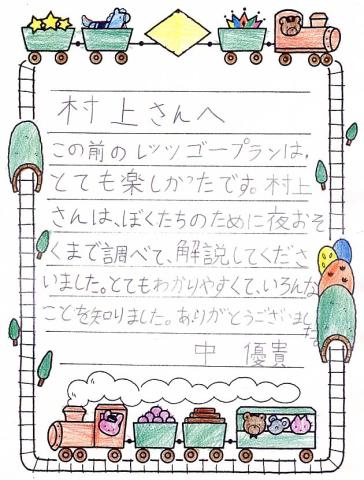 村上さんへ
この前のレッツゴープランは、
とても楽しかったです。村上
さんは、ぼくたちのために夜おそ
くまで調べて、解説してくださ
いました。とてもわかりやすくて、いろんな
ことを知りました。ありがとうございました。
中 優貴